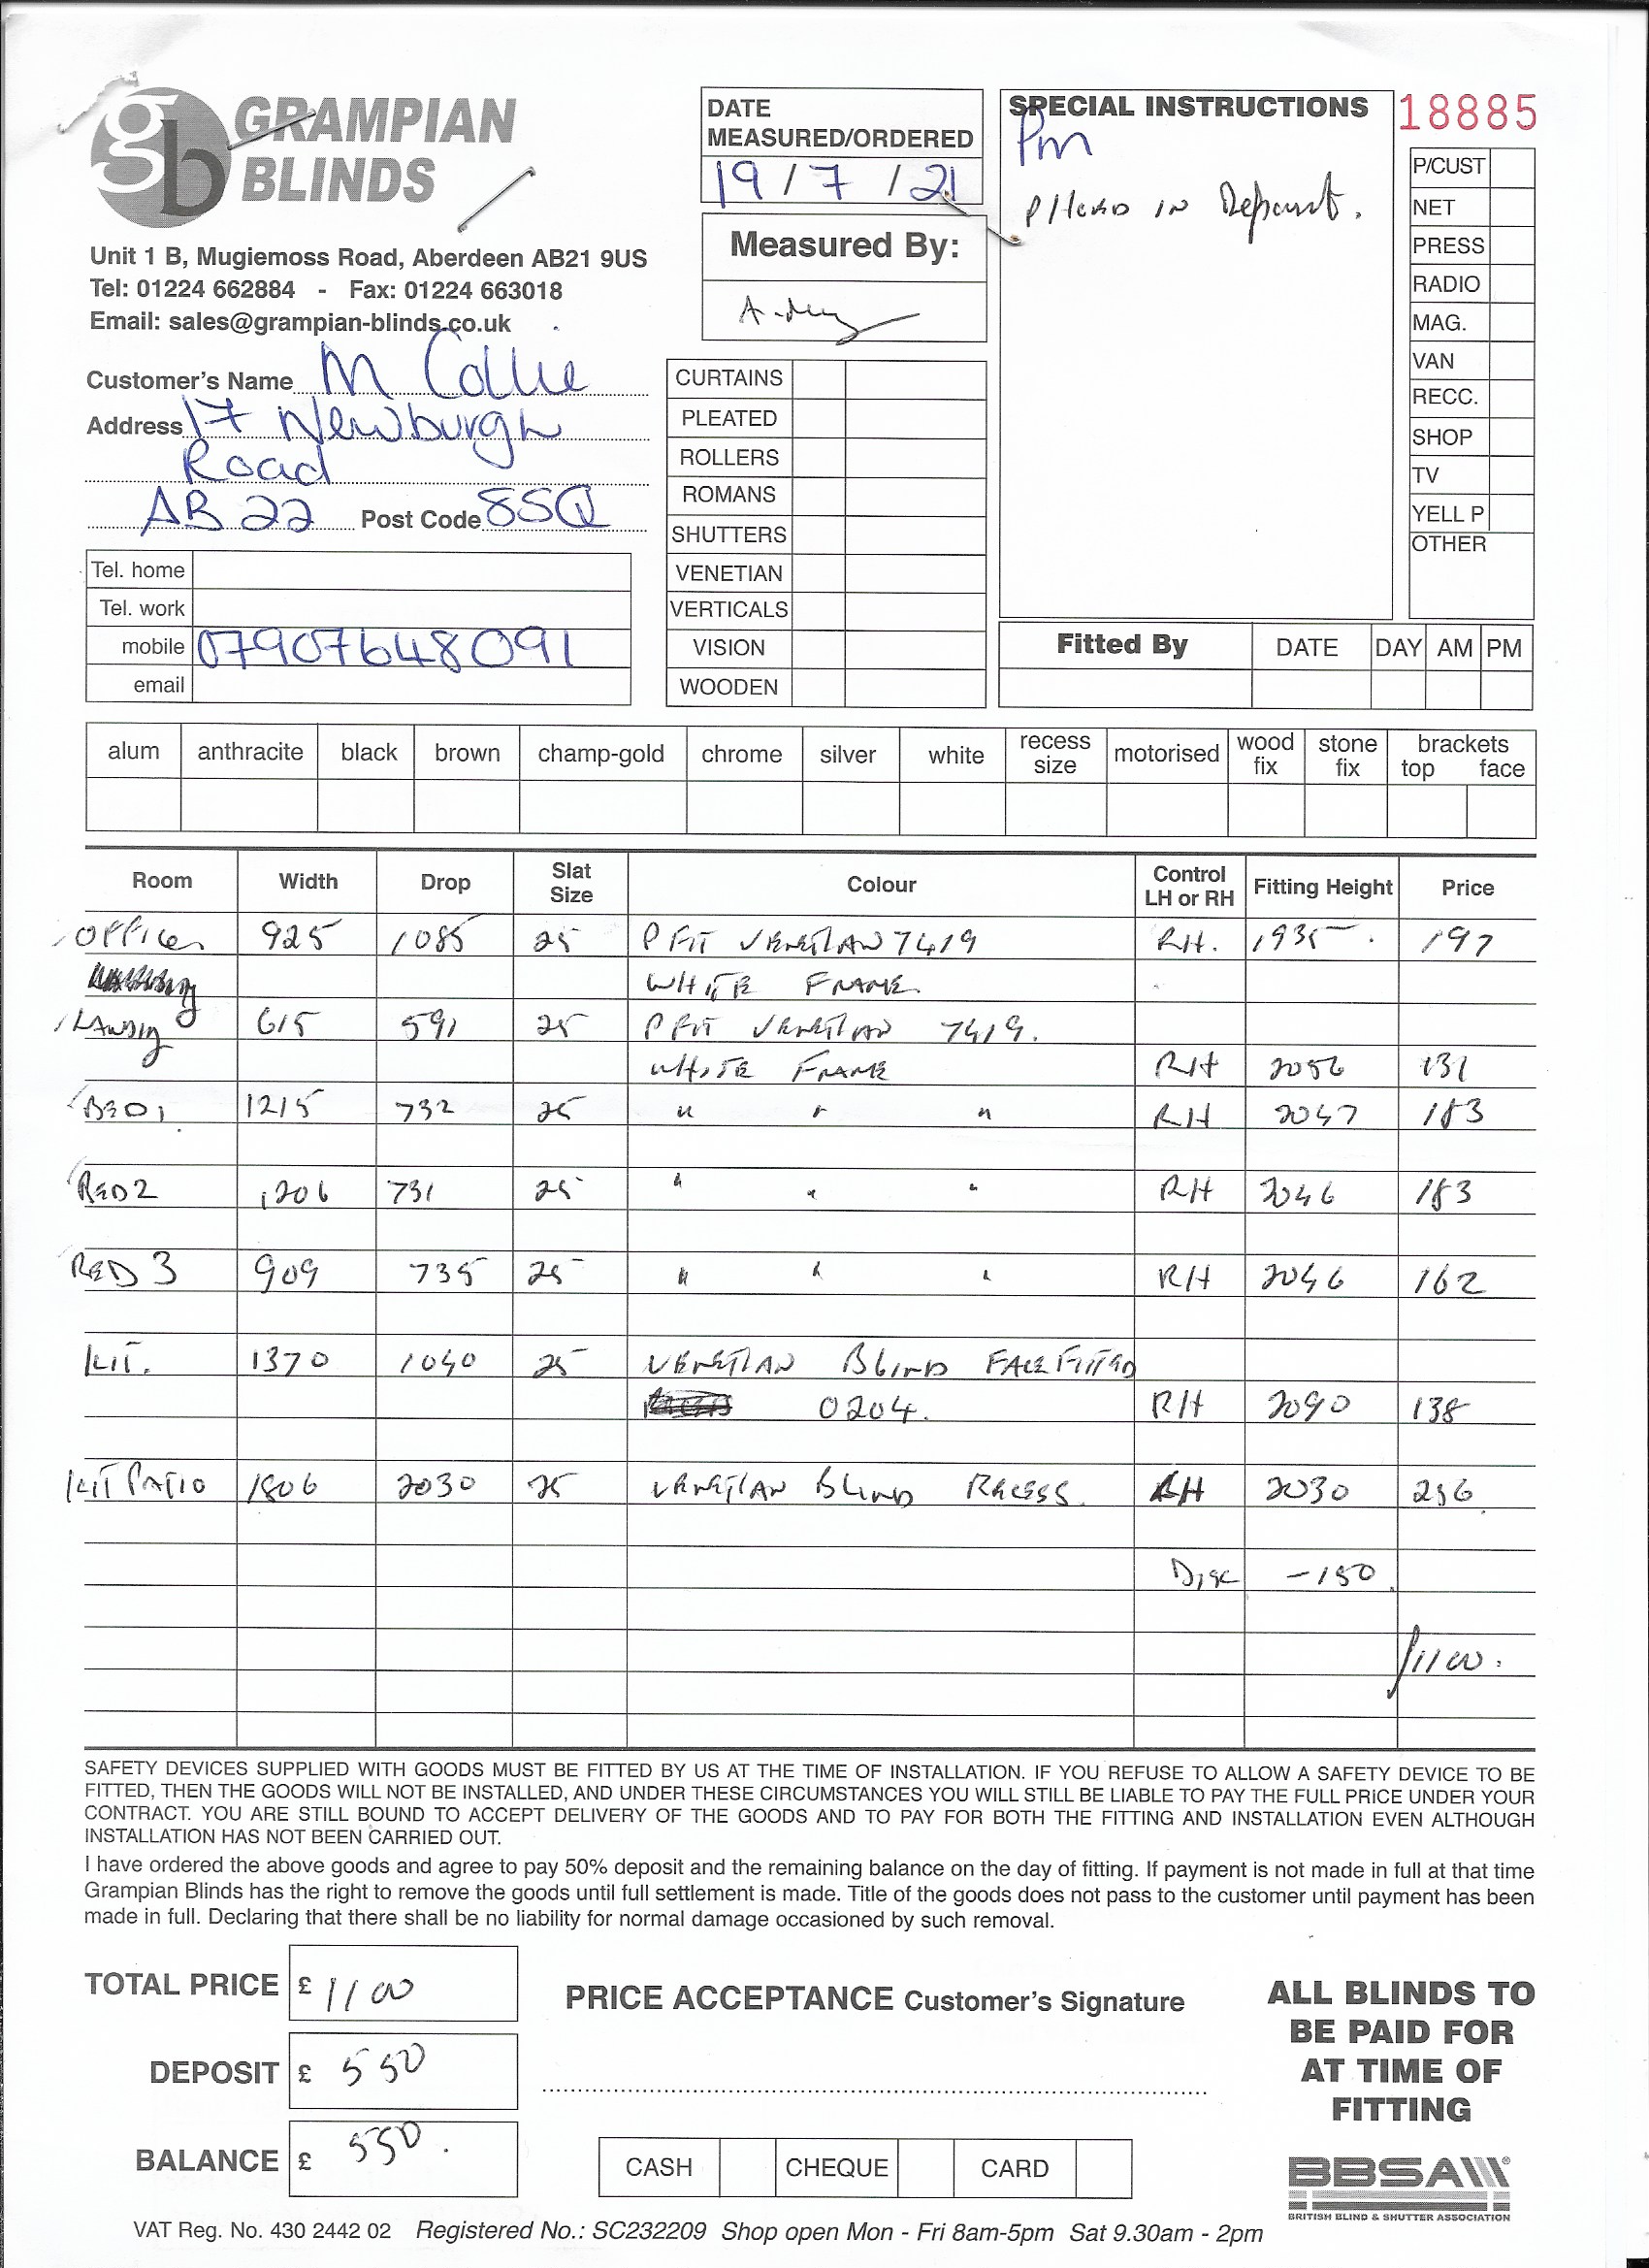 gb GRAMPIAN
BLINDS
Unit 1 B, Mugiemoss Road, Aberdeen AB21 9US
Tel: 01224 662884 - Fax: 01224 663018
Email: sales@grampian-blinds.co.uk
Customer's Name M Collie
Address 17 Newburgh
Road
AB22 Post Code 8SQ
Tel. home
Tel. work
mobile 07907648091
email
DATE
MEASURED/ORDERED
19/7/21
Measured By:
CURTAINS
PLEATED
ROLLERS
ROMANS
SHUTTERS
VENETIAN
VERTICALS
VISION
WOODEN
SPECIAL INSTRUCTIONS
Pm
P/Hend IN Deposit.
18885
P/CUST
NET
PRESS
RADIO
MAG.
VAN
RECC.
SHOP
TV
YELL P
OTHER
Fitted By DATE DAY AM PM
alum anthracite black brown champ-gold chrome silver white recess size motorised wood fix stone fix brackets top face
Room Width Drop Slat Size Colour Control LH or RH Fitting Height Price
OFFICE 925 1085 25 P FIT VENETIAN 7419 RH. 1935. 197
WHITE FRAME.
LANDING 615 591 25 P FIT VENETIAN 7419.
WHITE FRAME RH 2056 131
BED1 1215 732 25 " " " RH 2047 183
BED2 1206 731 25 " " " RH 2046 183
BED 3 909 735 25 " " " RH 2046 162
KIT. 1370 1040 25 VENETIAN BLIND FACE FITTED
0204. RH 2090 138
KIT PATIO 1806 2030 25 VENETIAN BLIND RECESS. 2030 256.
Disc -150
£1100.
SAFETY DEVICES SUPPLIED WITH GOODS MUST BE FITTED BY US AT THE TIME OF INSTALLATION. IF YOU REFUSE TO ALLOW A SAFETY DEVICE TO BE
FITTED, THEN THE GOODS WILL NOT BE INSTALLED, AND UNDER THESE CIRCUMSTANCES YOU WILL STILL BE LIABLE TO PAY THE FULL PRICE UNDER YOUR
CONTRACT. YOU ARE STILL BOUND TO ACCEPT DELIVERY OF THE GOODS AND TO PAY FOR BOTH THE FITTING AND INSTALLATION EVEN ALTHOUGH
INSTALLATION HAS NOT BEEN CARRIED OUT.
I have ordered the above goods and agree to pay 50% deposit and the remaining balance on the day of fitting. If payment is not made in full at that time
Grampian Blinds has the right to remove the goods until full settlement is made. Title of the goods does not pass to the customer until payment has been
made in full. Declaring that there shall be no liability for normal damage occasioned by such removal.
TOTAL PRICE £ 1100
DEPOSIT £ 550
BALANCE £ 550.
PRICE ACCEPTANCE Customer's Signature
CASH CHEQUE CARD
ALL BLINDS TO
BE PAID FOR
AT TIME OF
FITTING
BBSA
BRITISH BLIND & SHUTTER ASSOCIATION
VAT Reg. No. 430 2442 02 Registered No.: SC232209 Shop open Mon - Fri 8am-5pm Sat 9.30am - 2pm